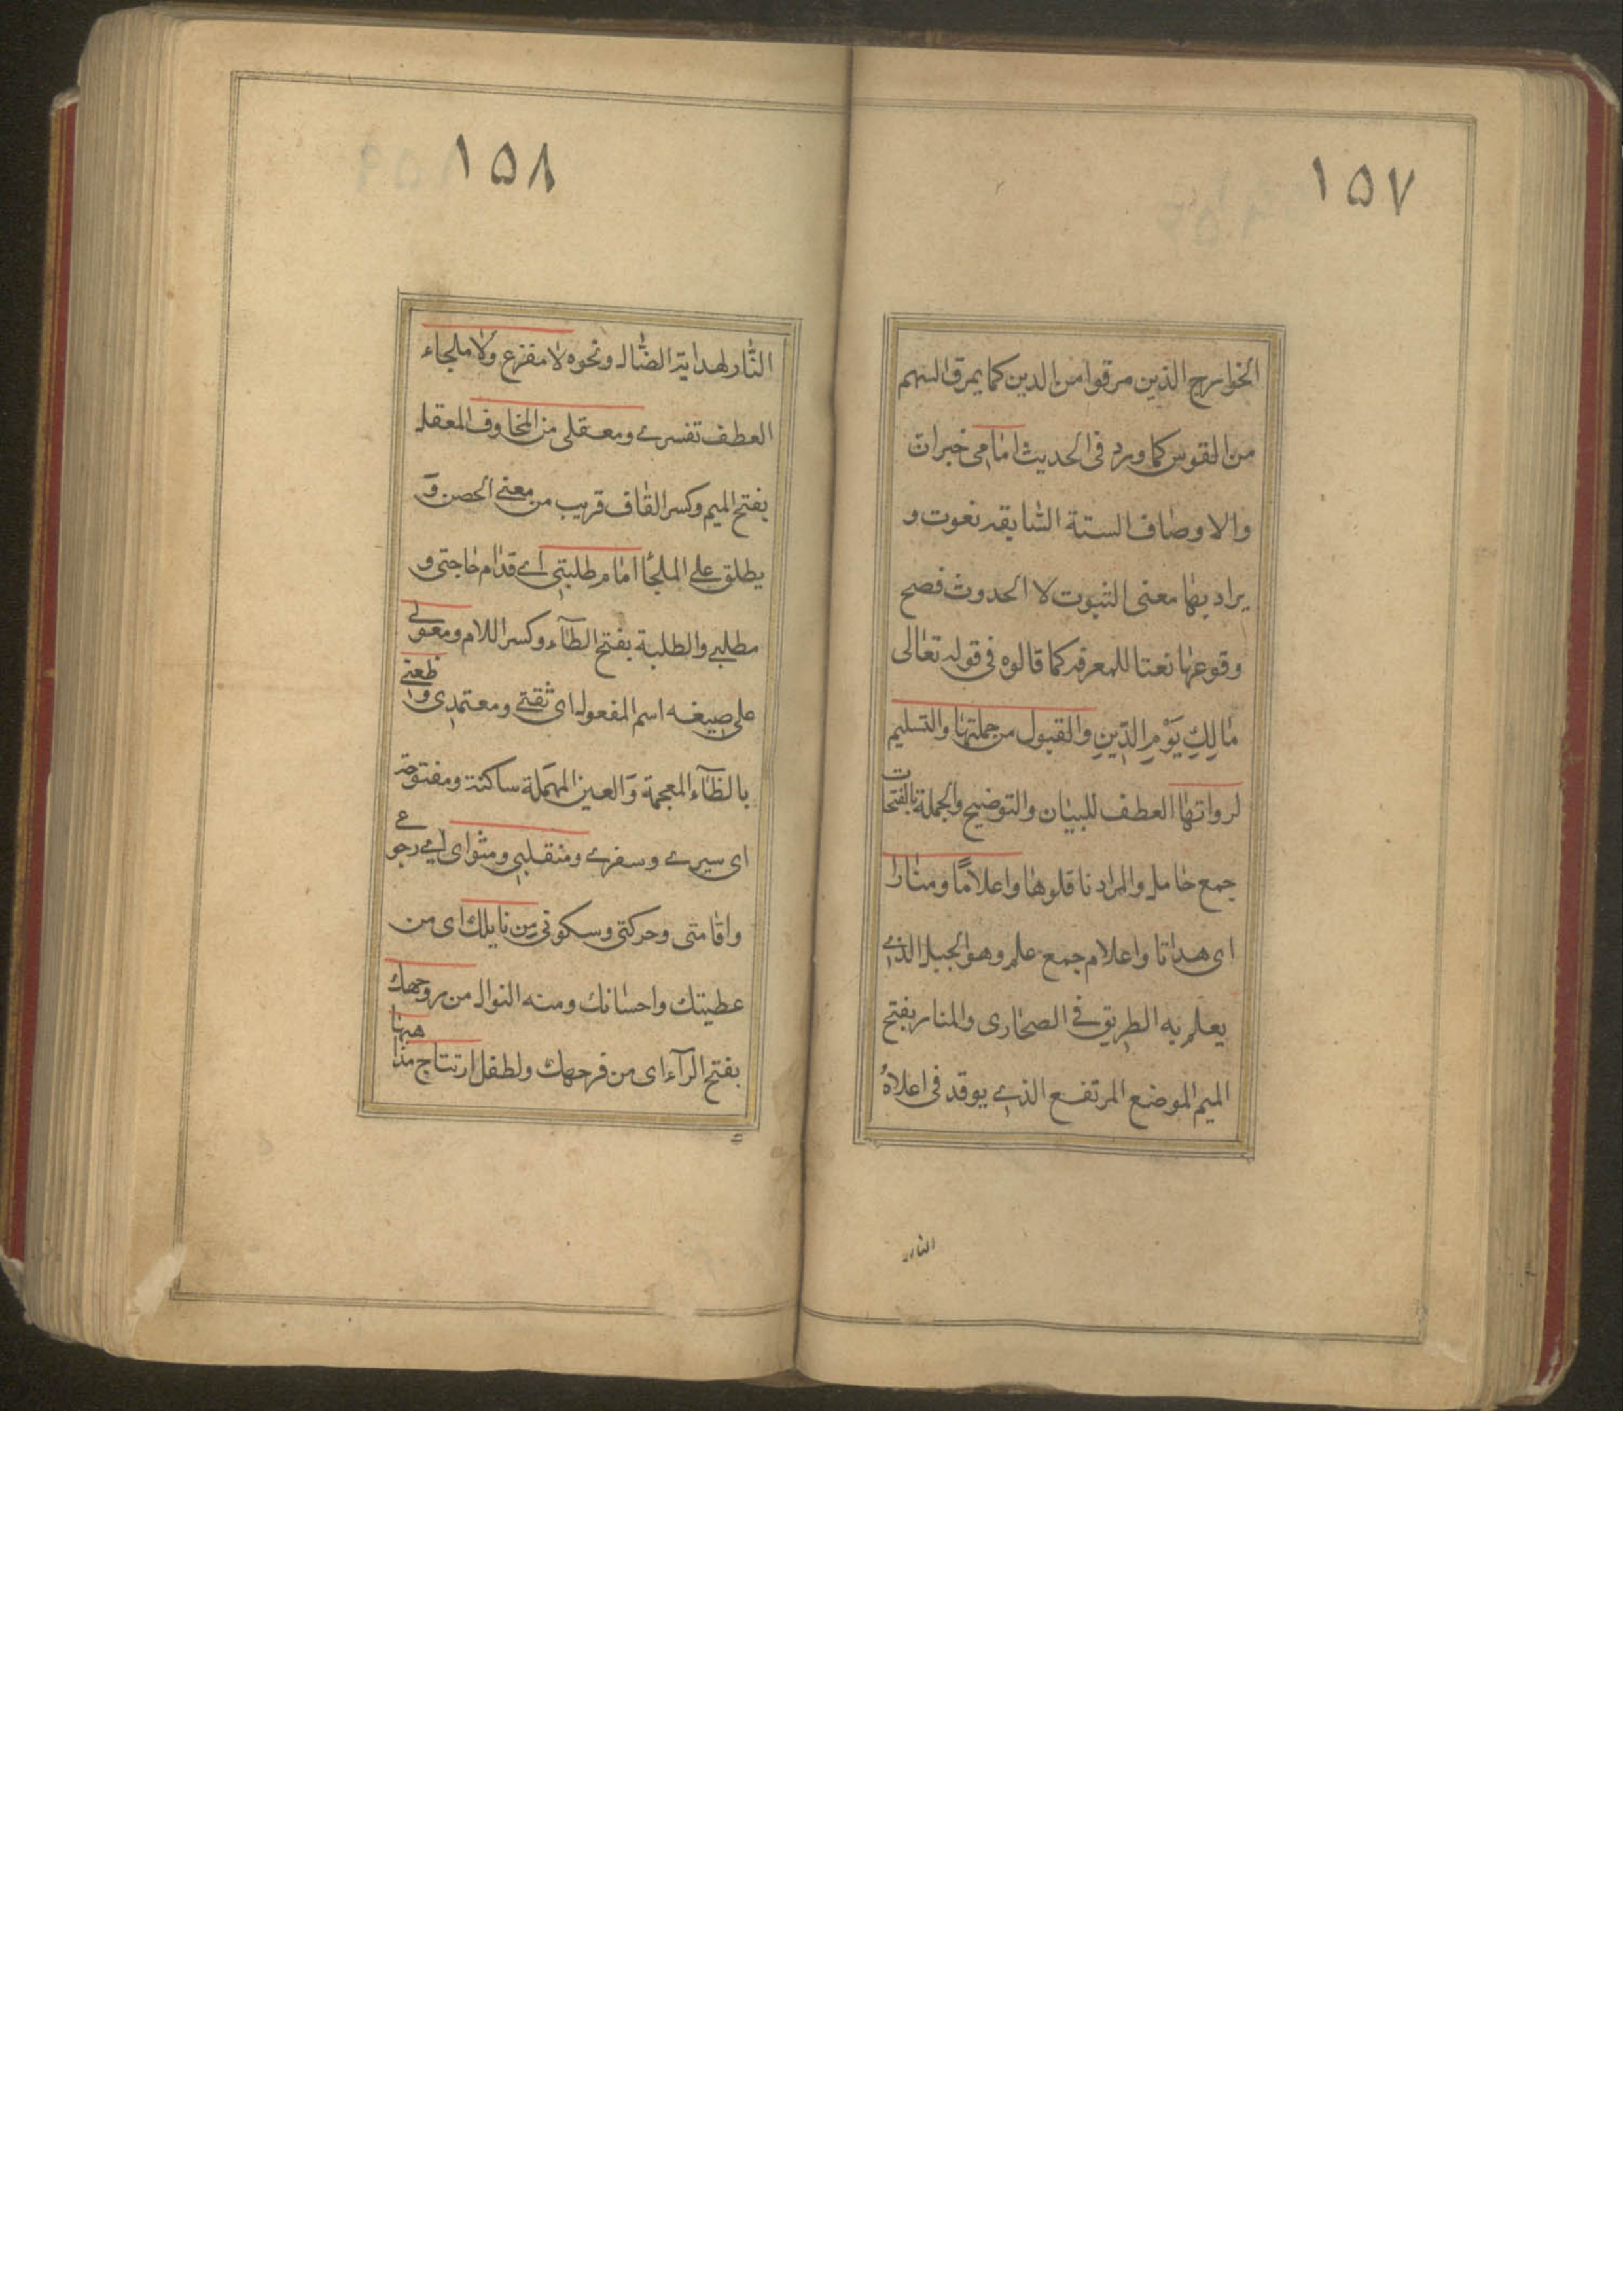 ١٥٧
الخوارج الذين مرقوا من الدين كما يمرق السهم
من القوس كما ورد فى الحديث امامى خبر ان
والاوصاف الستة السابقه نعوت و
يراد بها معنى الثبوت لا الحدوث فصح
وقوعها نعتا للمعرفه كما قالوه فى قوله تعالى
مالِكِ يَوْمِ الدّينِ والقبول من جملتها والتسليم
لرواتها العطف للبيان والتوضيح والجملة بالفتحات
جمع حامل والمراد ناقلوها واعلامًا ومنارا
اى هداتا واعلام جمع علم وهو الجبل الذي
يعلم به الطريق في الصحارى والمنار بفتح
الميم الموضع المرتفع الذي يوقد فى اعلاهُ
النار
١٥٨
النّار لهداية الضّال ونحوه لا مفزع ولا ملجاء
العطف تفسري ومعقلى من المخاوف المعقل
بفتح الميم وكسر القاف قريب من معنى الحصن وَ
يطلق على الملجأ امام طلبتى اي قدام حاجتى و
مطلبي والطلبة بفتح الطآء وكسر اللام ومعولي
على صيغه اسم المفعول اى ثقتي ومعتمدى و ظعني
بالظآء المعجمة وَالعين المهملة ساكنة ومفتوحة
اى سيري وسفري ومنقلبى ومثواى اي رجوعي
واقامتى وحركتى وسكونى من نايلك اى من
عطيتك واحسانك ومنه النوال من روحك
بفتح الرآء اى من فرجك ولطفك ارتتاج مذاهبها